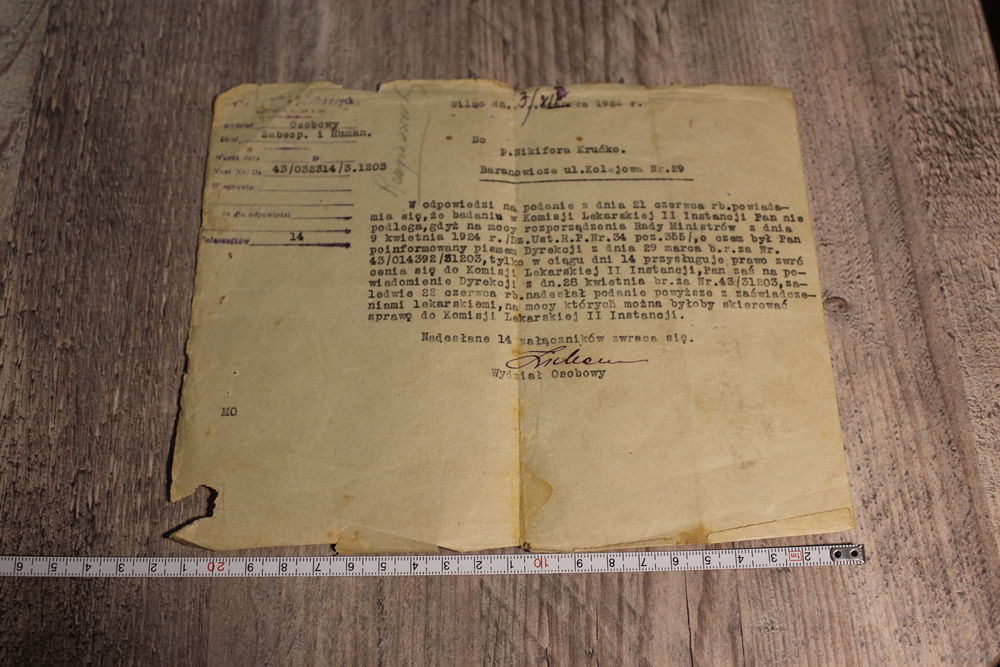 Wilno dn. 3/VII 1924 r.
Wydział Osobowy
Dział Zabezp. i Human.
Wasza data
Nasz Nr: Ds. 43/032314/3.1203
W sprawie
ta dla odpowiedzi
załączników 14
Do
P.Nikifora Krućko.
Baranowicze ul.Kolejowa Nr.29
W odpowiedzi na podanie z dnia 21 czerwca rb.powiada-
mia się,że badaniu w Komisji Lekarskiej II Instancji Pan nie
podlega,gdyż na mocy rozporządzenia Rady Ministrów z dnia
9 kwietnia 1924 r./Dz.Ust.R.P.Nr.34 poz.355/,o czem był Pan
poinformowany pismem Dyrekcji z dnia 29 marca b.r.za Nr.
43/014392/31203,tylko w ciągu dni 14 przysługuje prawo zwró
cenia się do Komisji Lekarskiej II Instancji,Pan zaś na po-
wiadomienie Dyrekcji z dn.28 kwietnia br.za Nr.43/31203,za-
ledwie 22 czerwca rb.nadesłał podanie powyższe z zaświadcze-
niami lekarskiemi,na mocy których można byłoby skierować
sprawę do Komisji Lekarskiej II Instancji.
Nadesłane 14 załączników zwraca się.
Wydział Osobowy
MO
6 5 4 3 2 1 20 9 8 7 6 5 4 3 2 1 10 9 8 7 6 5 4 3 1m 2